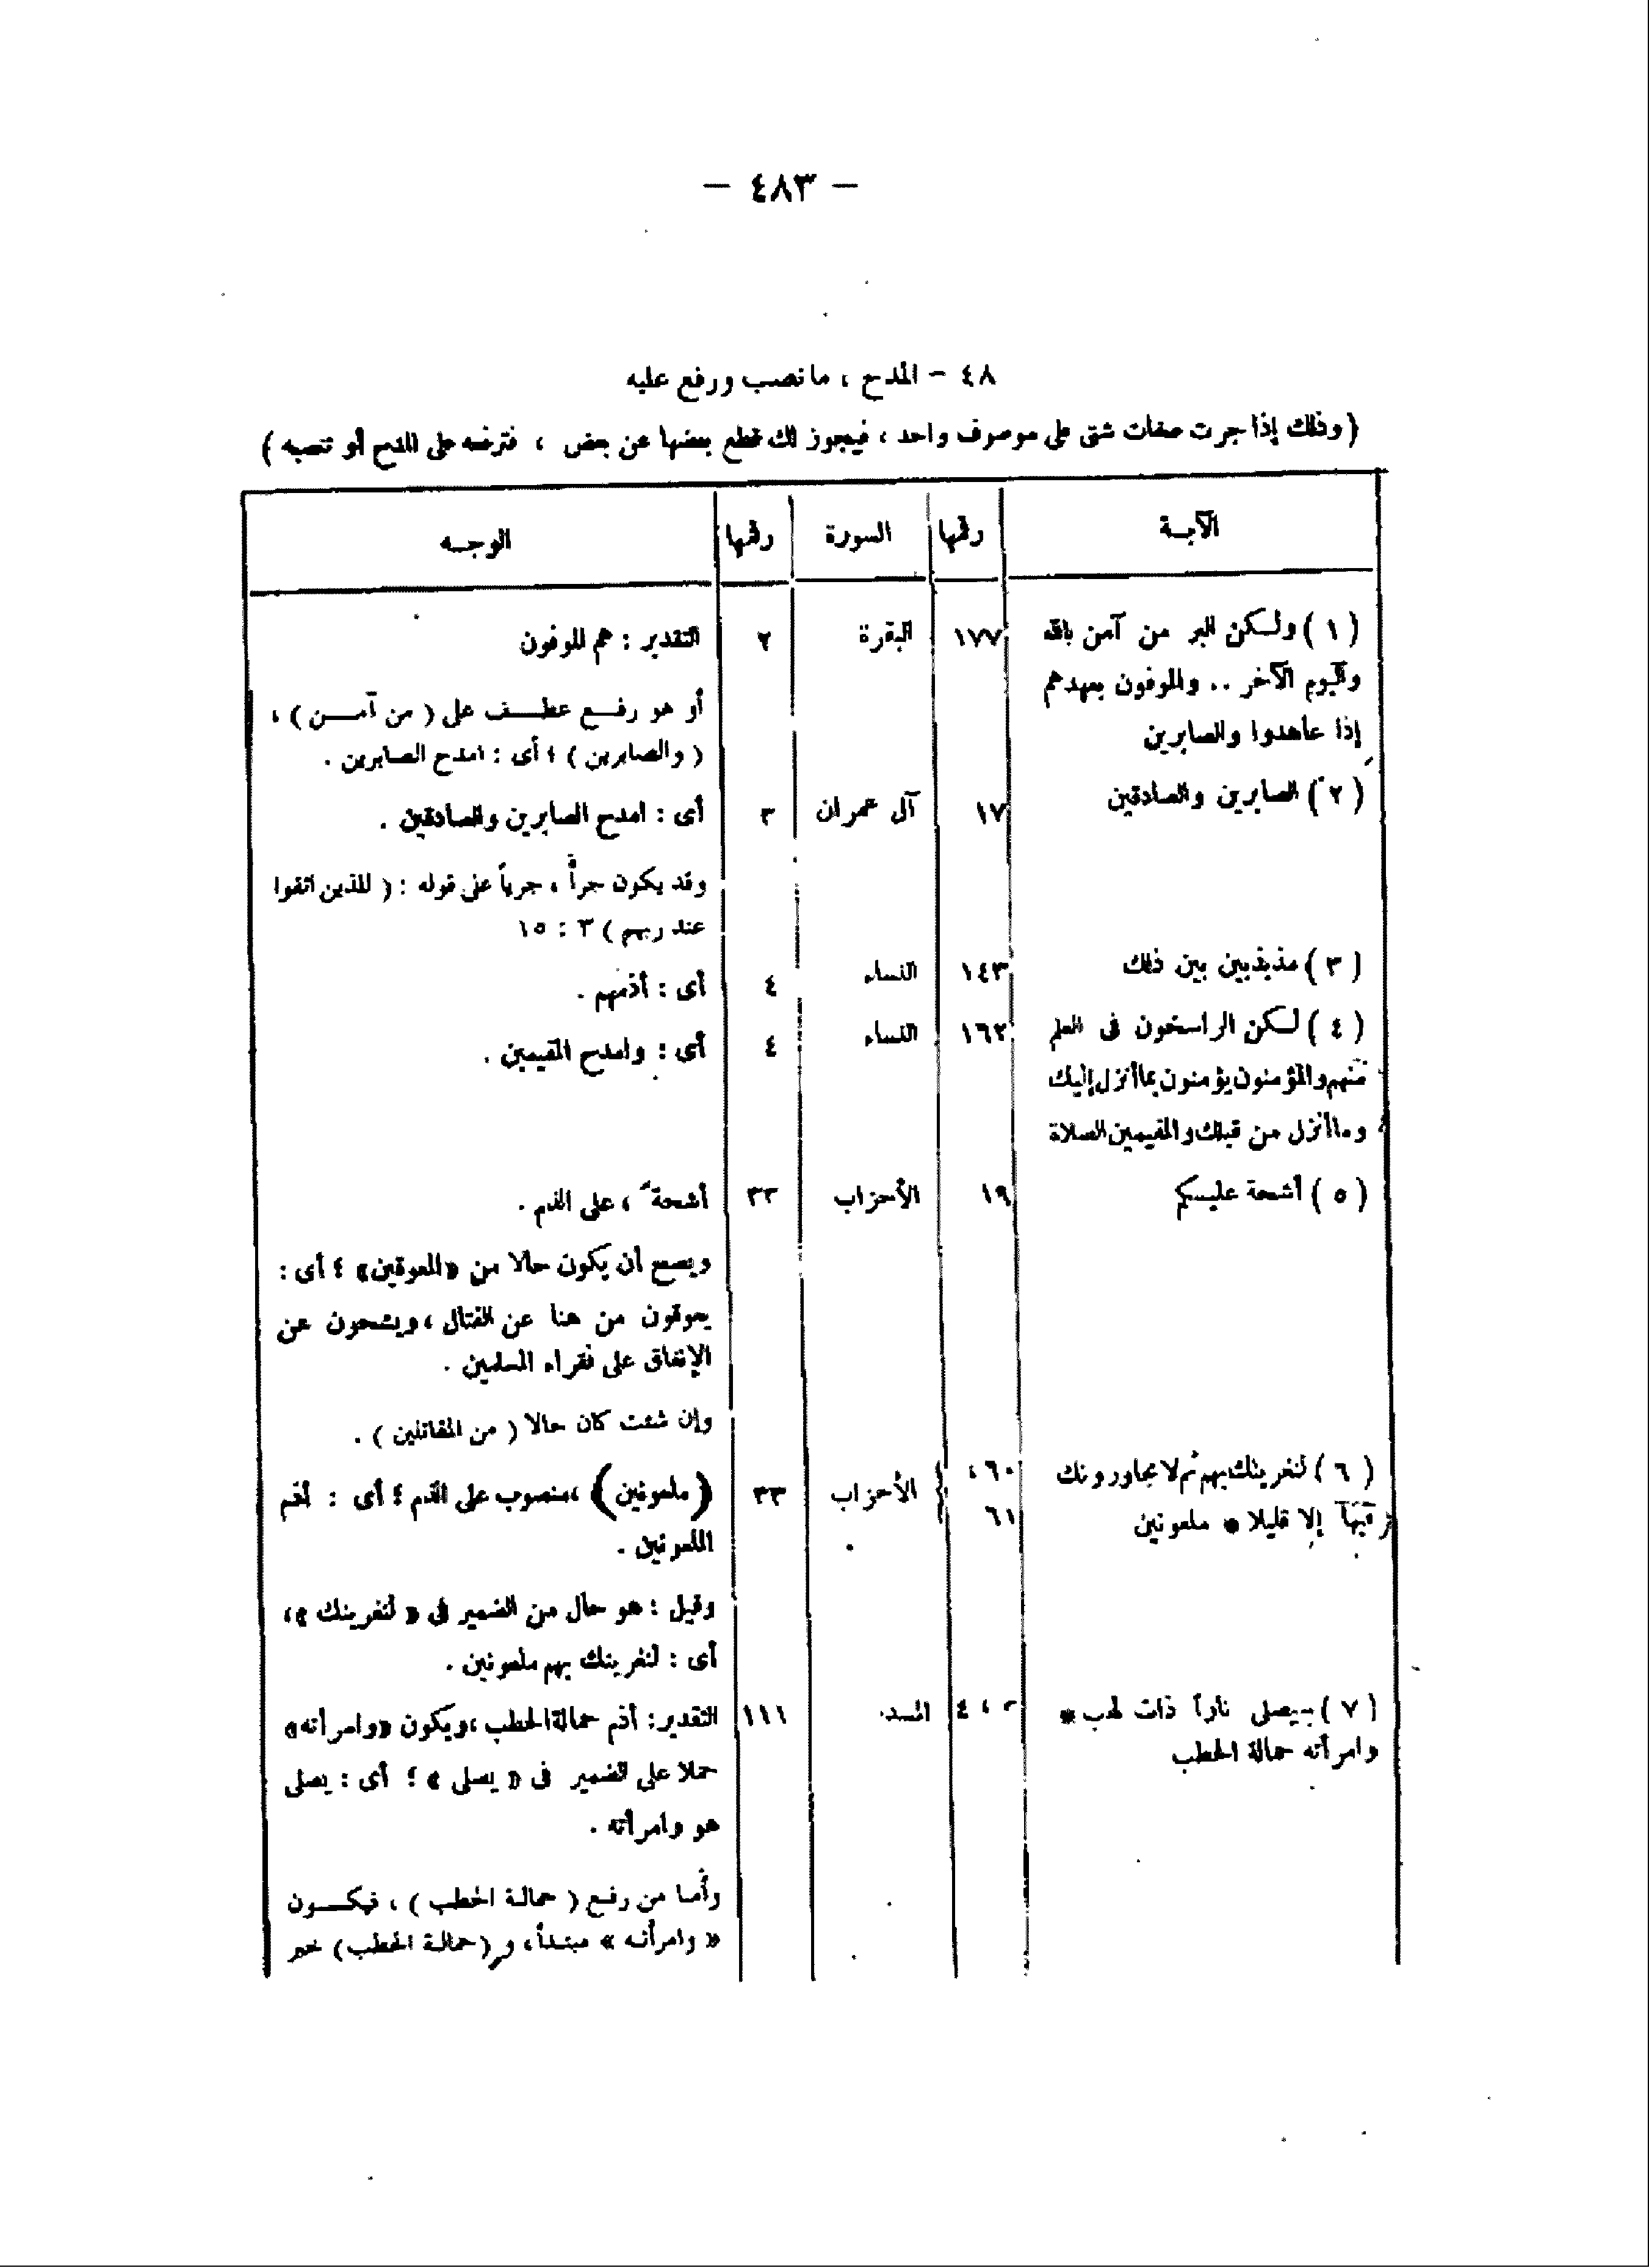 — ٤٨٣ —
٤٨ – المدح ، ما نصب ورفع عليه
( وذلك إذا جرت صفات شتى على موصوف واحد ، فيجوز لك قطع بعضها عن بعض ، فترفعه على المدح أو تنصبه )
الآيــة رقمها السورة رقمها الوجــه
( ١ ) ولـكن البر من آمن بالله ١٧٧ البقرة ٢ التقدير : هم الموفون
واليوم الآخر .. والموفون بعهدهم
أو هو رفــع عطــف على ( من آمــن ) ،
إذا عاهدوا والصابرين
( والصابرين ) ؛ أى : امدح الصابرين .
( ٢ ) الصابرين والصادقين ١٧ آل عمران ٣ أى : امدح الصابرين والصادقين .
وقد يكون جراً ، جرياً على قوله : ( للذين اتقوا
عند ربهم ) ٣ : ١٥
( ٣ ) مذبذبين بين ذلك ١٤٣ النساء ٤ أى : أذمهم .
( ٤ ) لـكن الراسخون فى العلم ١٦٢ النساء ٤ أى : وامدح المقيمين .
منهم والمؤمنون يؤمنون بما أنزل إليك
وما أنزل من قبلك والمقيمين الصلاة
( ٥ ) أشحة عليـكم ١٩ الأحزاب ٣٣ أشحةً ، على الذم .
ويصح أن يكون حالا من «المعوقين» ؛ أى :
يعوقون من هنا عن القتال ، ويشحون عن
الإنفاق على فقراء المسلمين .
وإن شئت كان حالا ( من المقاتلين ) .
( ٦ ) لنغرينك بهم ثم لا يجاورونك ٦٠ ، الأحزاب ٣٣ (ملعونين) ، منصوب على الذم ؛ أى : أذم
فيها إلا قليلا * ملعونين ٦١
الملعونين .
وقيل : هو حال من الضمير فى « لنغرينك » ،
أى : لنغرينك بهم ملعونين .
( ٧ ) سيصلى ناراً ذات لهب * ٣ ، ٤ المسد ١١١ التقدير: أذم حمالة الحطب ، ويكون «وامرأته»
وامرأته حمالة الحطب
حملا على الضمير فى « يصلى » ؛ أى : يصلى
هو وامرأته .
وأما من رفع ( حمالة الحطب ) ، فيكــون
« وامرأته » مبتدأ ، و (حمالة الحطب) خبر